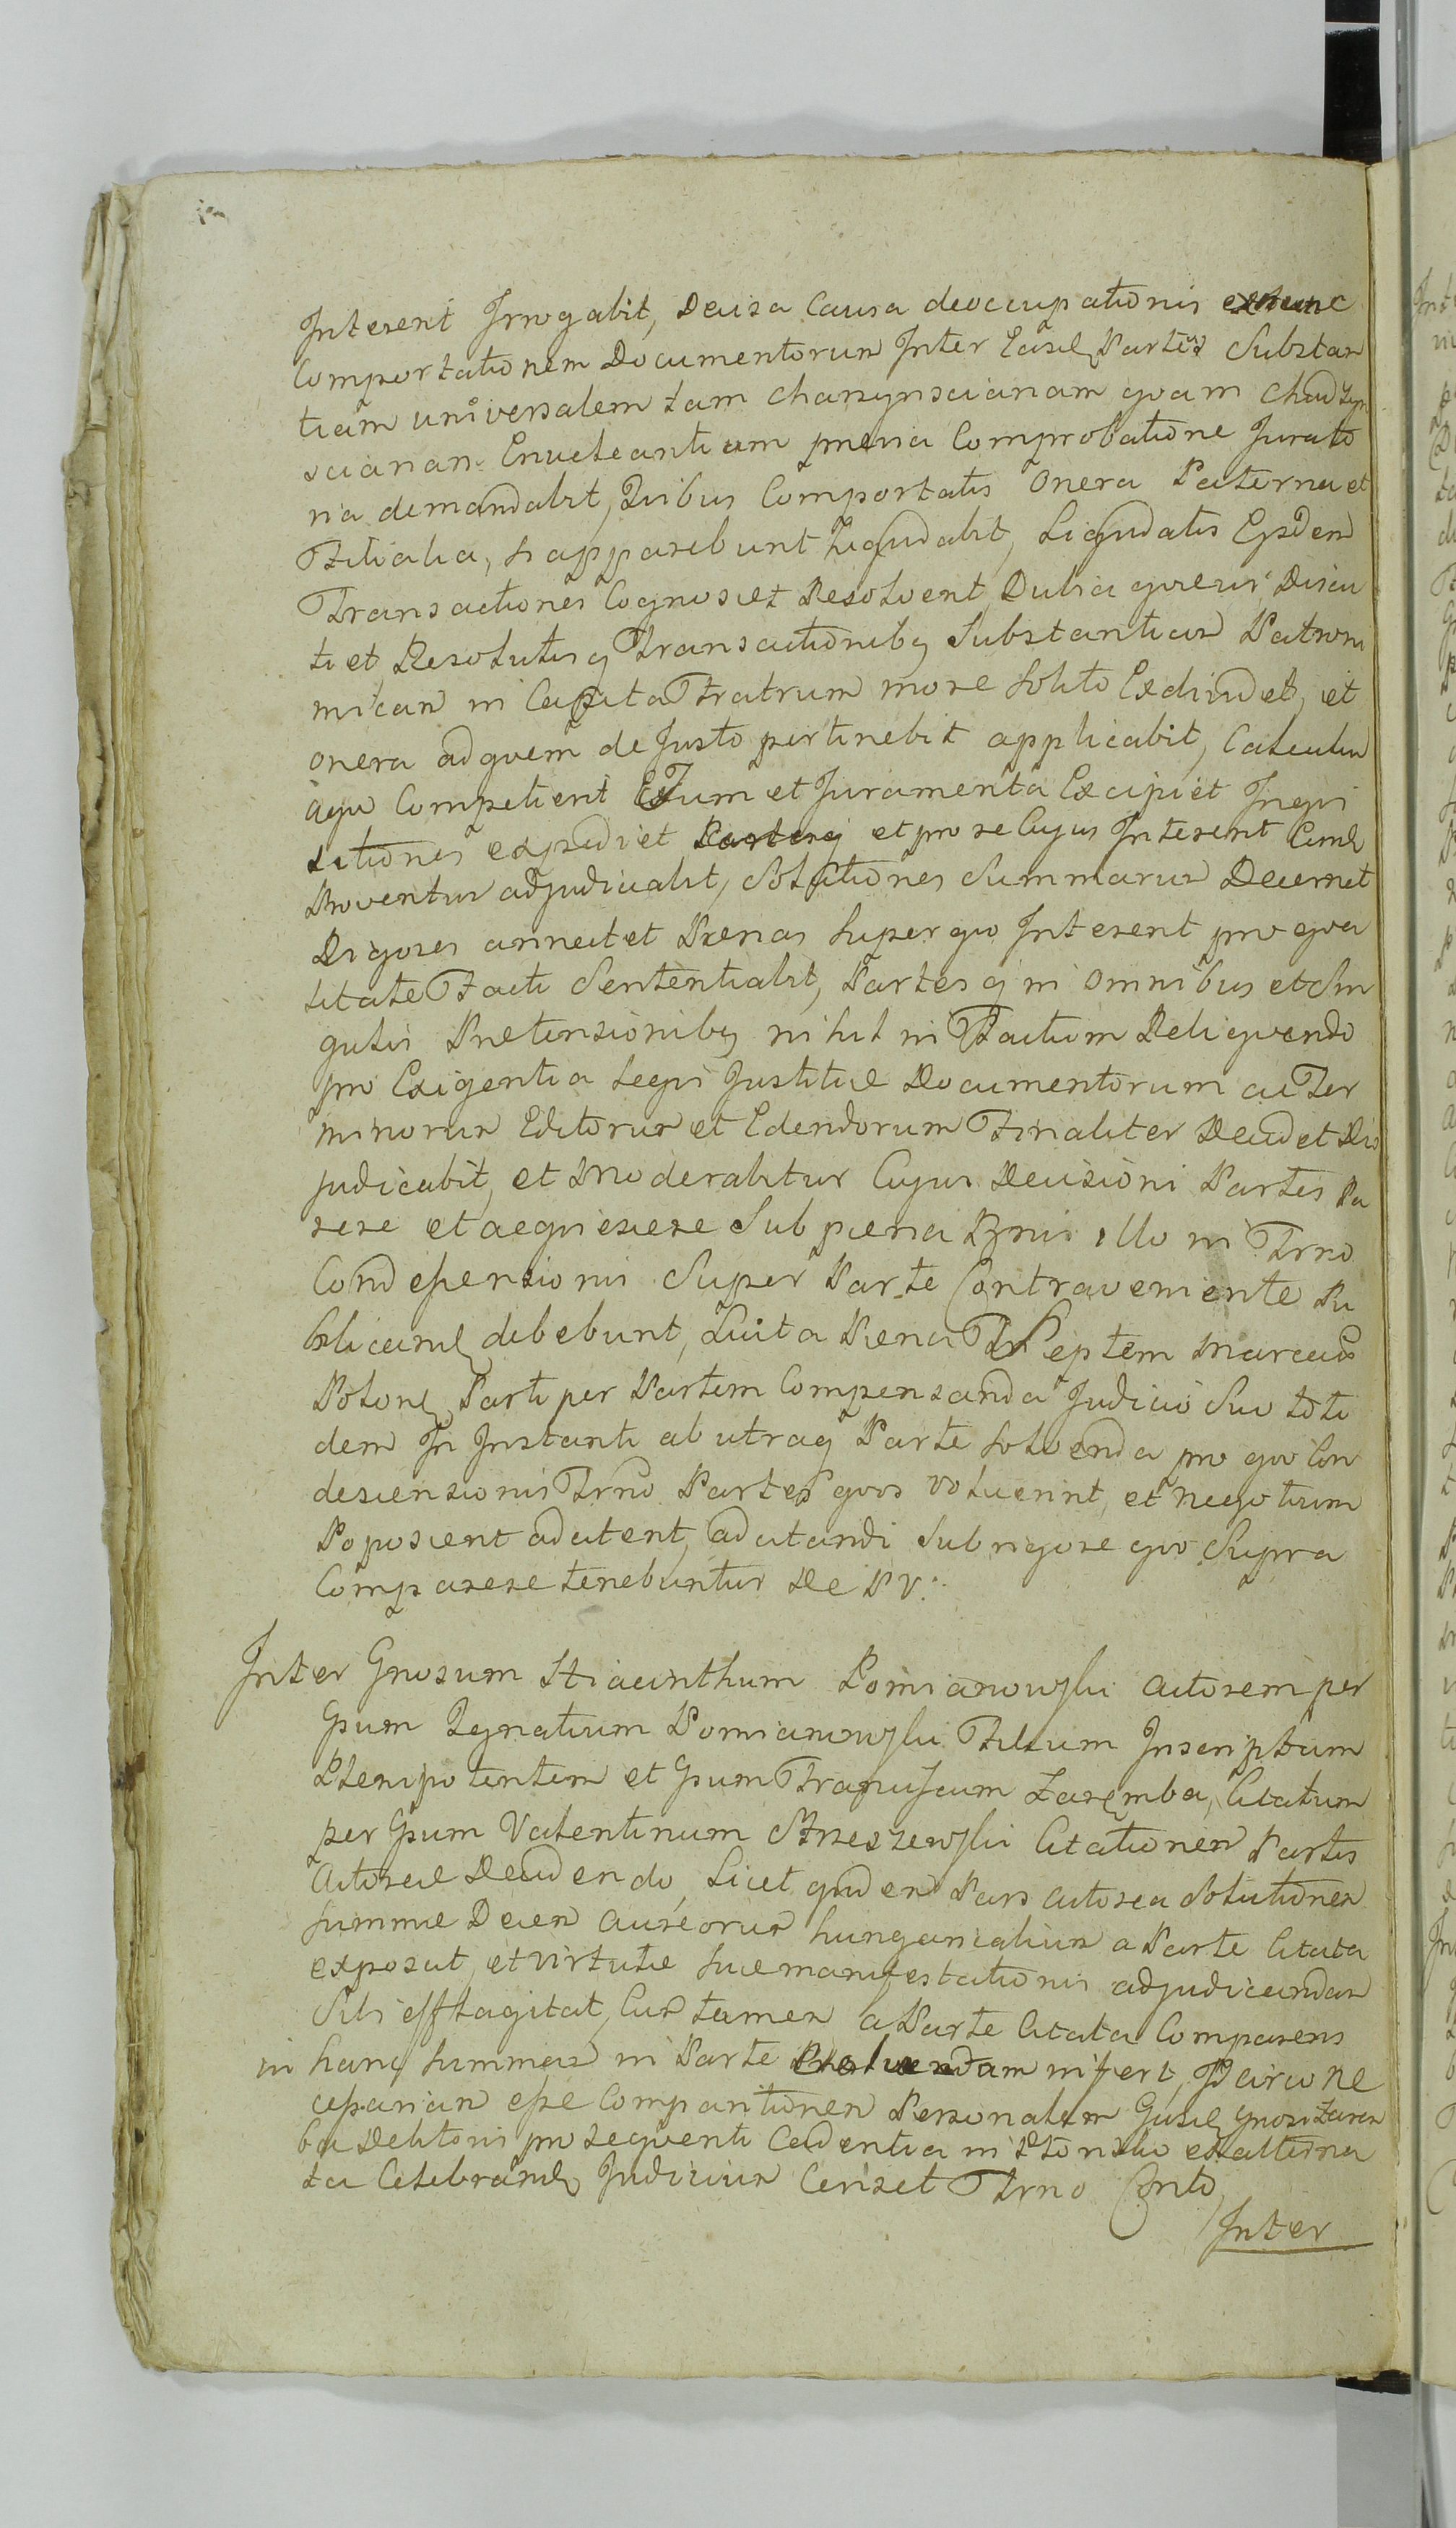 Interent Irrogabit, Decisa Causa deoccupationis extunc
Comportationem Documentorum Inter Easd Partes Substan
tiam universalem tam Charzynscianam qvam Chudzyn
scianam Enucleantium previa Comprobatione Jurato
ria demandabit, Qvibus Comportatis Onera Paterna et
Filialia, si apparebunt Liqvidabit, Liqvidatis Eisdem
Transactiones Cognoscet Resolvent Dubia qvaevis Discu
tiet, Resolutisq Transactionibq Substantiam Patrimo
nicam in Capita Fratrum more solito Exdividet, et
onera ad qvem de Justo pertinebit applicabit, Calculum
aqvo Competient Exum et Juramenta Excipiet Inqvi
sitiones expediet et pro re Cujus Interent Eund
Proventus adjudicabit, Solutiones Summarum Decernet
Rigores annectet Paenas super qvo Interent pro qva
litate Facti Sententiabit, Partesq in omnibus et Sin
gulis Praetensionibq nihil in Factum Reliqvendo
pro Exigentia Legis Justitiae Documentorum ac Ter
minorum Editorum et Edendorum Finaliter Decidet Dis
judicabit, et Moderabitur Cujus Decisioni Partes Pa
rere et acqviescere Sub paena Bnis illo in Trno
Condescensionis Super Parte Contraveniente Pu
blicand debebunt, Luita Paena Trs Septem Marcarum
Polonl Parti per Partem Compensanda Judicio Suo toti
dem In Instanti ab utraq Parte solvenda pro qvo Con
descensionis Trno Partes qvos voluerint, et negotium
Poposcent adcitent, adcitandi Sub rigore qvo Supra
Comparere tenebuntur De PV.
Inter Gnosum Hiacinthum Pomianowski Actorem per
Gsum Ignatium Pomianowski Filium Inscriptum
Plenipotentem et Gsum Franciscum Zaremba, Citatum
per Gsum Valentinum Strzeszewski Citationem Partis
Actoreae Decidendo, Licet qvidem Pars Actorea Solutionem
summae Decem Aureorum hungaricalium a Parte Citata
exposcit, et virtute suae manifestationis adjudicandam
Sibi efflagitat, Cum tamen a Parte Citata Comparens
in hanc summam in Parte infert, Pairco Ne
cessariam esse Comparitionem Personalem Gusd Gnosi Zarem
ba Debitoris pro seqventi Cadentia in exalterna
ta Celebrand Judicium Censet Trno Conto
Inter